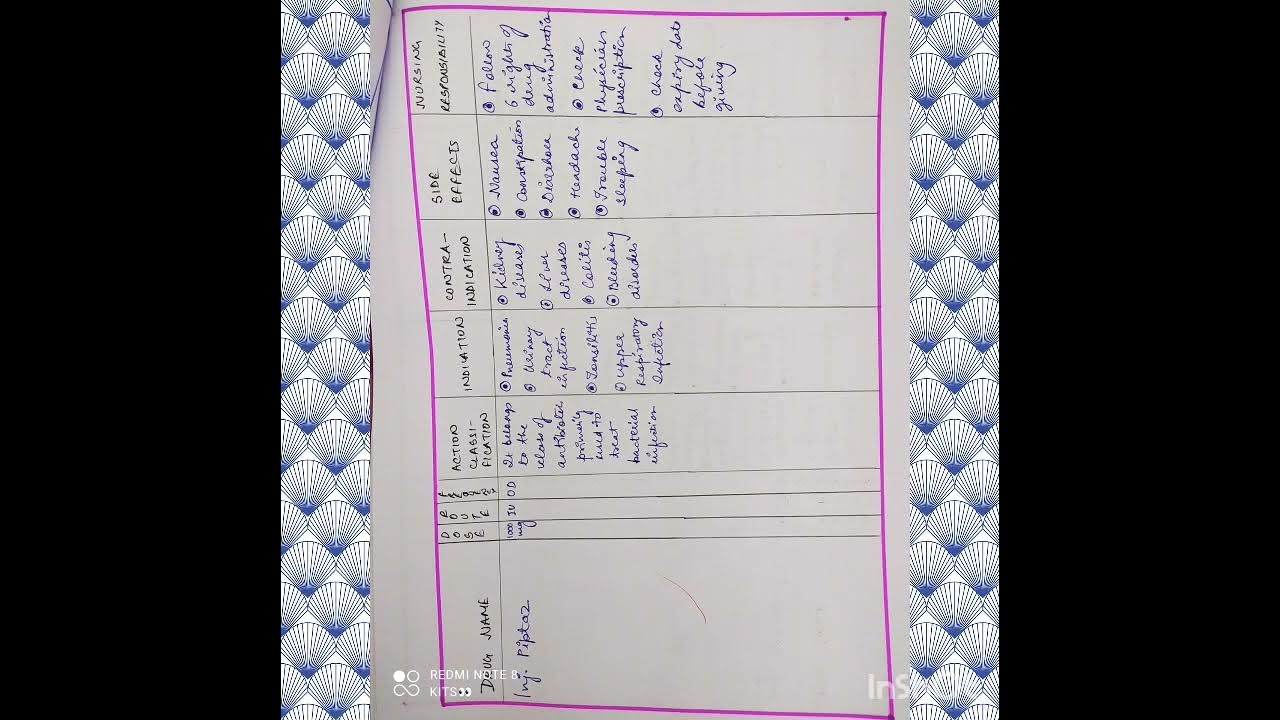 DRUG NAME
DOSE
ROUTE
ACTION
CLASSI-
FICATION
INDICATION
CONTRA-
INDICATION
SIDE
EFFECTS
NURSING
RESPONSIBILITY
Inj. Piptaz
1000
mg
IV
OD
It belongs
to the
class of
antibiotic
primarily
used to
treat
bacterial
infection
Pneumonia
Urinary
tract
infection
Tonsilitis
Upper
Respiratory
Infection
Kidney
disease
Liver
diseases
Colitis
Bleeding
disorders
Nausea
Constipation
Diarrhoea
Headache
Trouble
sleeping
Follow
6 rights of
drug
administration
Check
Physician
prescription
Check
expiry date
before
giving
REDMI NOTE 8
KITS👀
InS